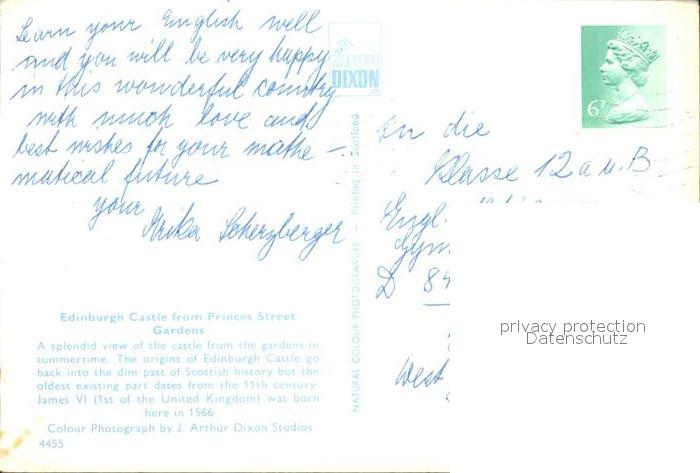 Learn your English well
and you will be very happy
in this wonderful country
with much love and
best wishes for your mathe-
matical future
your
Erika Scherzberger
DIXON
6P
An die
Klasse 12 a u. B
Engl.
Gym
D 84
West
NATURAL COLOUR PHOTOGRAVURE — Printed in Scotland
privacy protection
Datenschutz
Edinburgh Castle from Princes Street
Gardens
A splendid view of the castle from the gardens in
summertime. The origins of Edinburgh Castle go
back into the dim past of Scottish history but the
oldest existing part dates from the 11th century.
James VI (1st of the United Kingdom) was born
here in 1566
Colour Photograph by J. Arthur Dixon Studios
4455